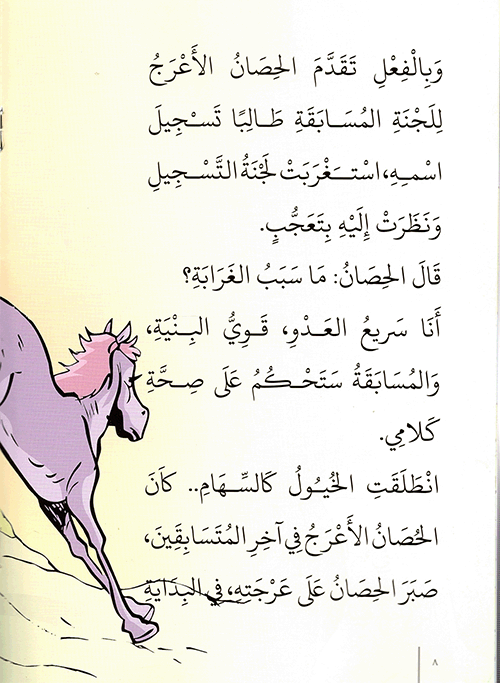 وَبِالْفِعْلِ تَقَدَّمَ الحِصَانُ الأَعْرَجُ
لِلَجْنَةِ المُسَابَقَةِ طَالِبًا تَسْجِيلَ
اسْمِهِ، اسْتَغْرَبَتْ لَجْنَةُ التَّسْجِيلِ
وَنَظَرَتْ إِلَيْهِ بِتَعَجُّبٍ.
قَالَ الحِصَانُ: مَا سَبَبُ الغَرَابَةِ؟
أَنَا سَرِيعُ العَدْوِ، قَوِيُّ البِنْيَةِ،
وَالمُسَابَقَةُ سَتَحْكُمُ عَلَى صِحَّةِ
كَلَامِي.
انْطَلَقَتِ الخُيُولُ كَالسِّهَامِ.. كَانَ
الحُصَانُ الأَعْرَجُ فِي آخِرِ المُتَسَابِقِينَ،
صَبَرَ الحِصَانُ عَلَى عَرْجَتِهِ، فِي البِدَايَةِ
٨